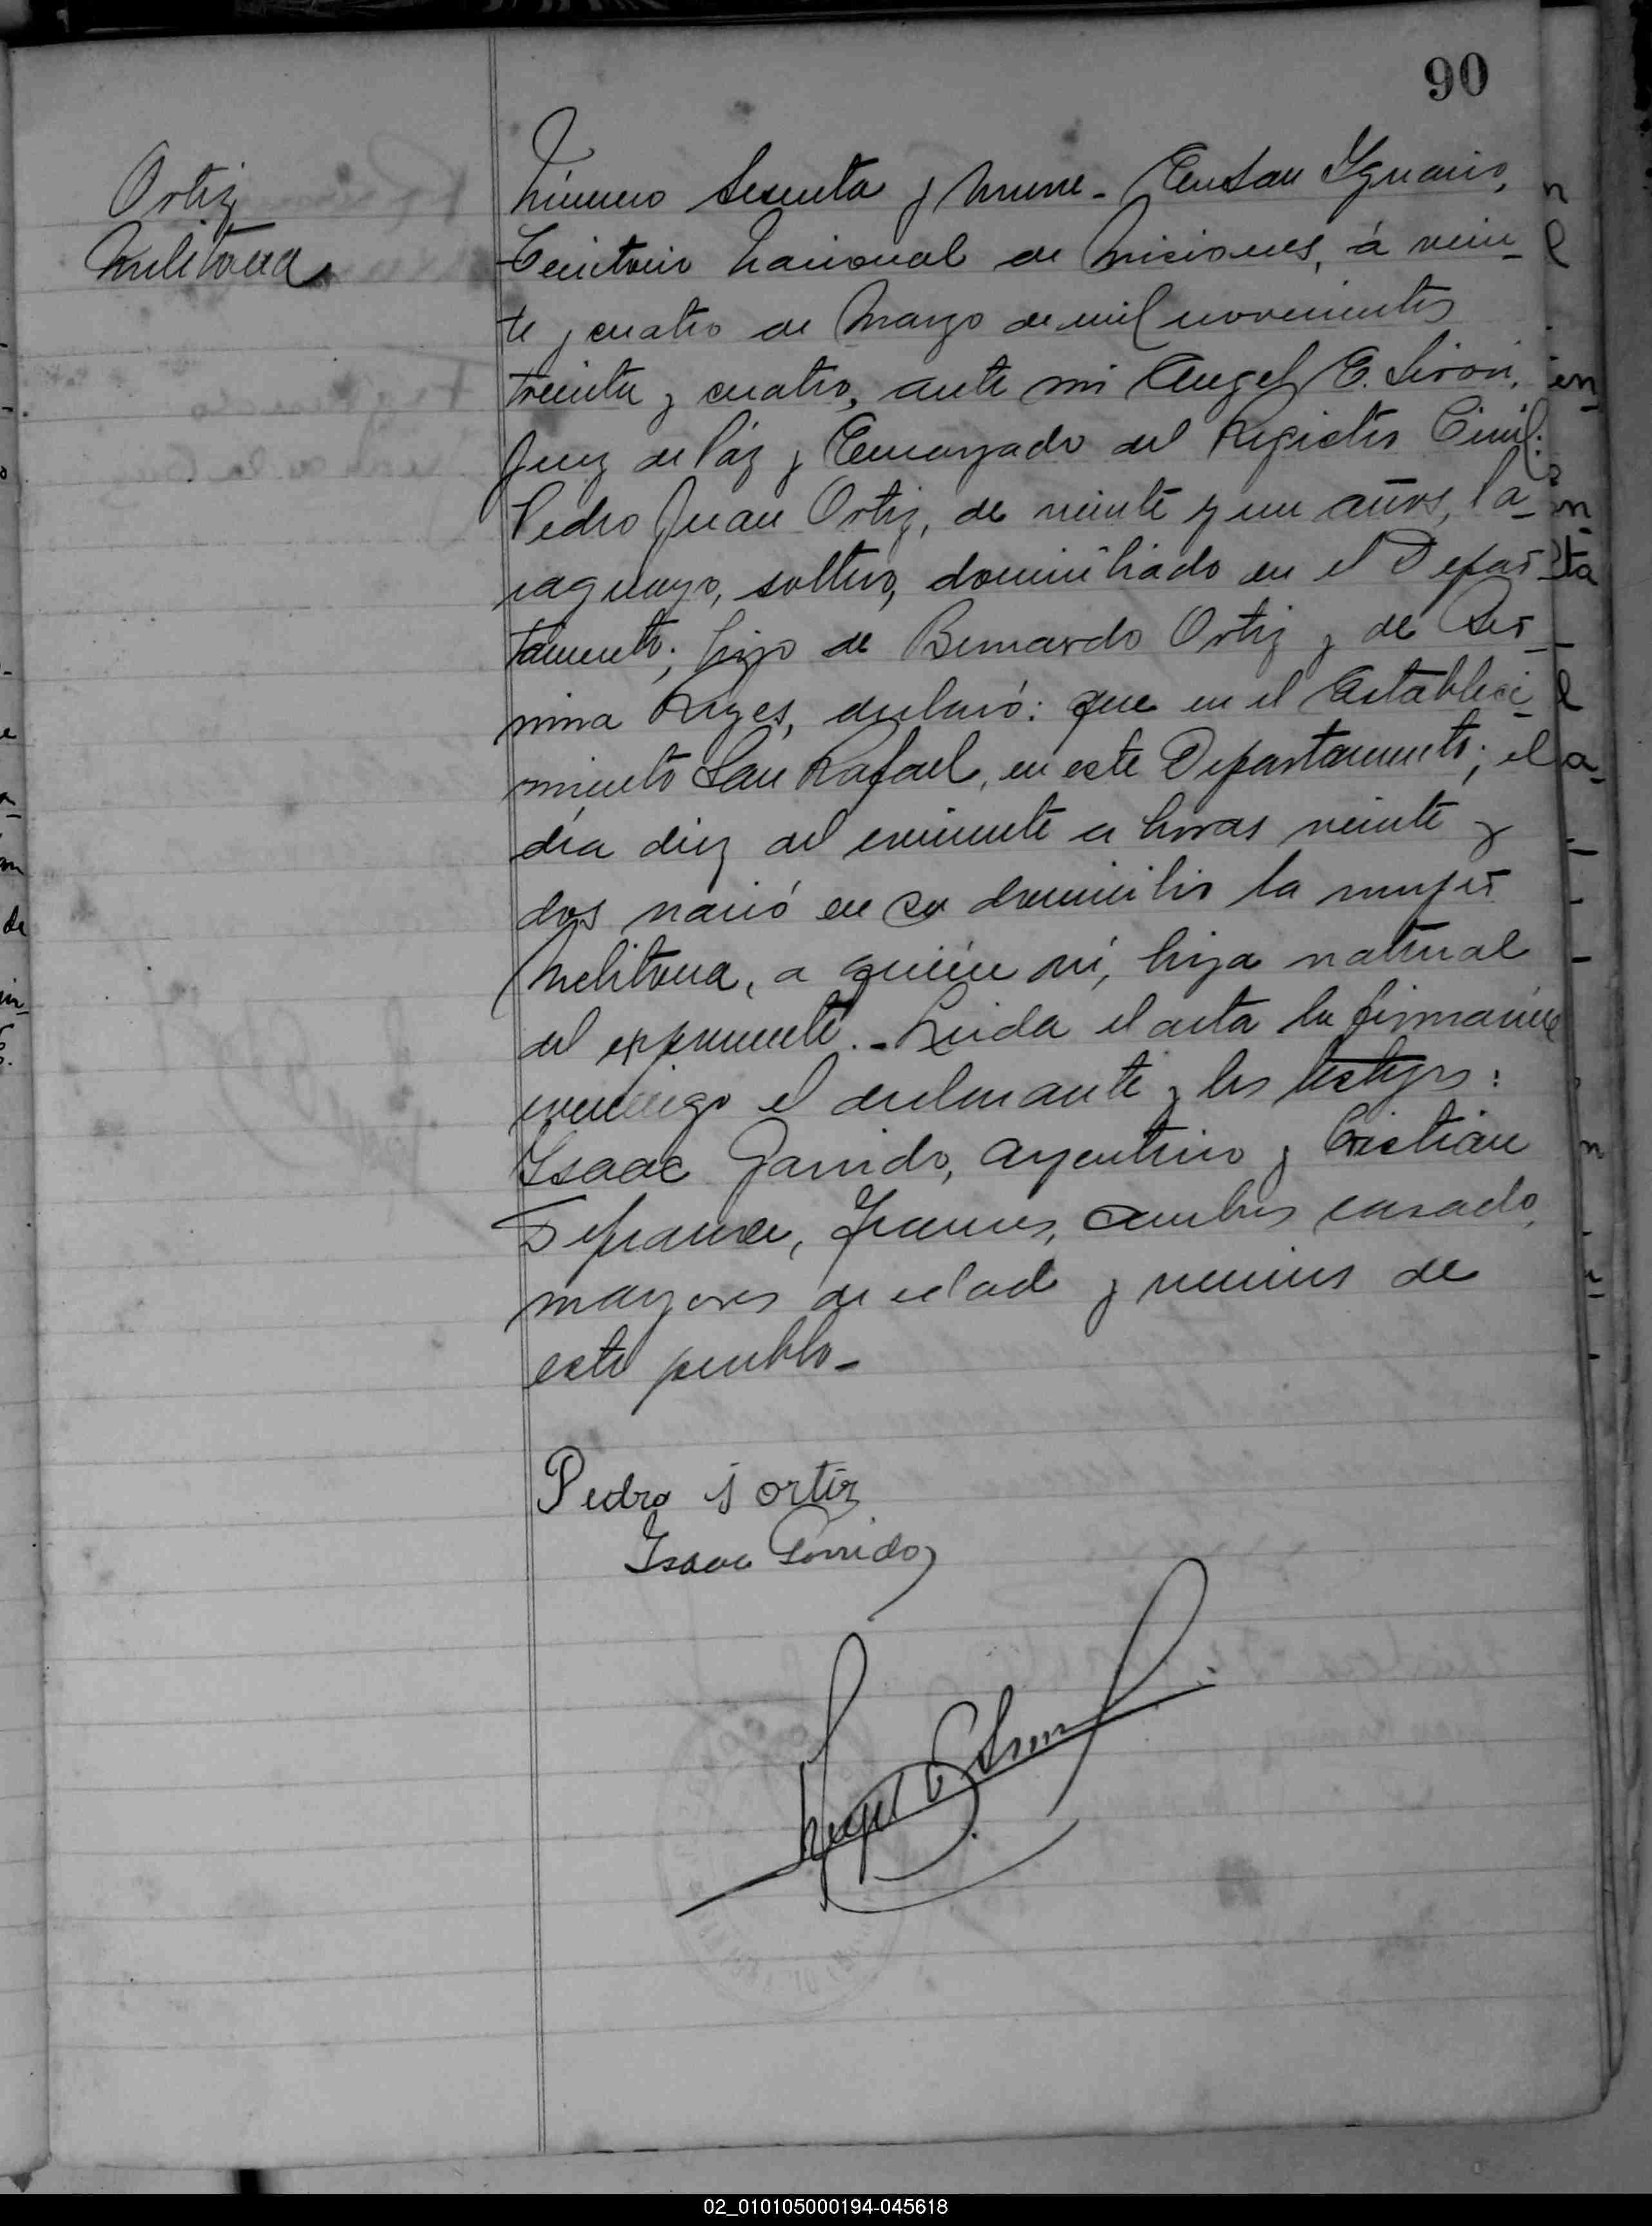 90
Ortiz
Melitona
Número Sesenta y Nueve - En San Ygnacio,
Territorio Nacional de Misiones, á vein-
te y cuatro de Marzo de mil novecientos
treinta y cuatro, ante mi Angel E.
Juez de Páz y Encargado del Registro Civil:
Pedro Juan Ortiz, de veinte y un años, Pa-
raguayo, soltero, domiciliado en el Depar-
tamento; hijo de Bernardo Ortiz y de
Reyes, declaró: que en el Estableci-
miento San Rafael, en este Departamento; el
día diez del corriente a horas veinte y
dos nació en su domicilio la mujer
Melitona, a quién ví, hija natural
del exponente. - Leida el acta la firmaron
conmigo el declarante y los testigos:
Isaac Garrido, Argentino y Cristian
Defrance, Frances, ambos casado,
mayores de edad y vecinos de
este pueblo -
Pedro J ortiz
Isaac Garrido
Angel E
02_010105000194-045618